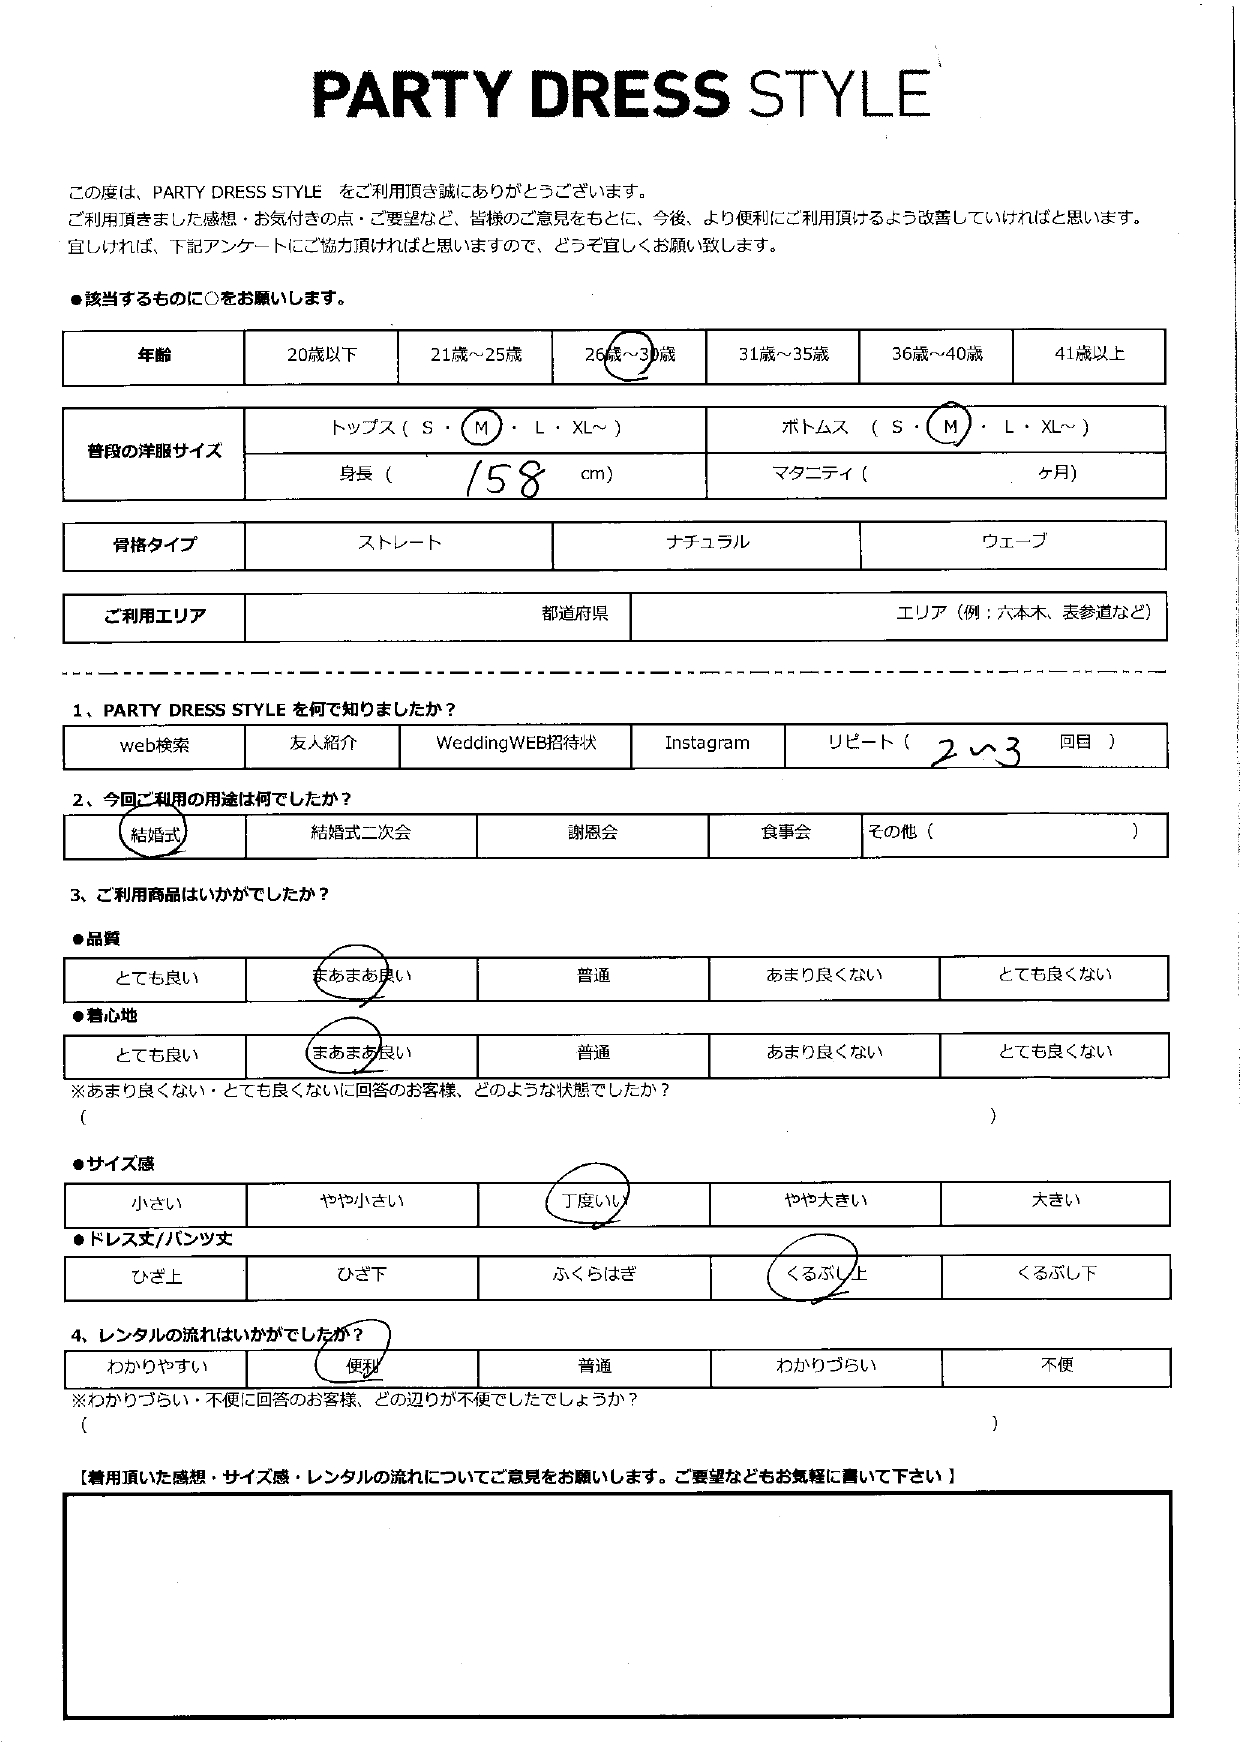 PARTY DRESS STYLE
この度は、PARTY DRESS STYLE をご利用頂き誠にありがとうございます。
ご利用頂きました感想・お気付きの点・ご要望など、皆様のご意見をもとに、今後、より便利にご利用頂けるよう改善していければと思います。
宜しければ、下記アンケートにご協力頂ければと思いますので、どうぞ宜しくお願い致します。
●該当するものに○をお願いします。
年齢 20歳以下 21歳～25歳 26歳～30歳 31歳～35歳 36歳～40歳 41歳以上
普段の洋服サイズ トップス ( S ・ M ・ L ・ XL～ ) ボトムス ( S ・ M ・ L ・ XL～ )
身長 ( 158 cm) マタニティ ( ヶ月)
骨格タイプ ストレート ナチュラル ウェーブ
ご利用エリア 都道府県 エリア（例；六本木、表参道など）
1、PARTY DRESS STYLE を何で知りましたか？
web検索 友人紹介 WeddingWEB招待状 Instagram リピート ( 2～3 回目 )
2、今回ご利用の用途は何でしたか？
結婚式 結婚式二次会 謝恩会 食事会 その他 ( )
3、ご利用商品はいかがでしたか？
●品質
とても良い まあまあ良い 普通 あまり良くない とても良くない
●着心地
とても良い まあまあ良い 普通 あまり良くない とても良くない
※あまり良くない・とても良くないに回答のお客様、どのような状態でしたか？
( )
●サイズ感
小さい やや小さい 丁度いい やや大きい 大きい
●ドレス丈/パンツ丈
ひざ上 ひざ下 ふくらはぎ くるぶし上 くるぶし下
4、レンタルの流れはいかがでしたか？
わかりやすい 便利 普通 わかりづらい 不便
※わかりづらい・不便に回答のお客様、どの辺りが不便でしたでしょうか？
( )
【着用頂いた感想・サイズ感・レンタルの流れについてご意見をお願いします。ご要望などもお気軽に書いて下さい 】